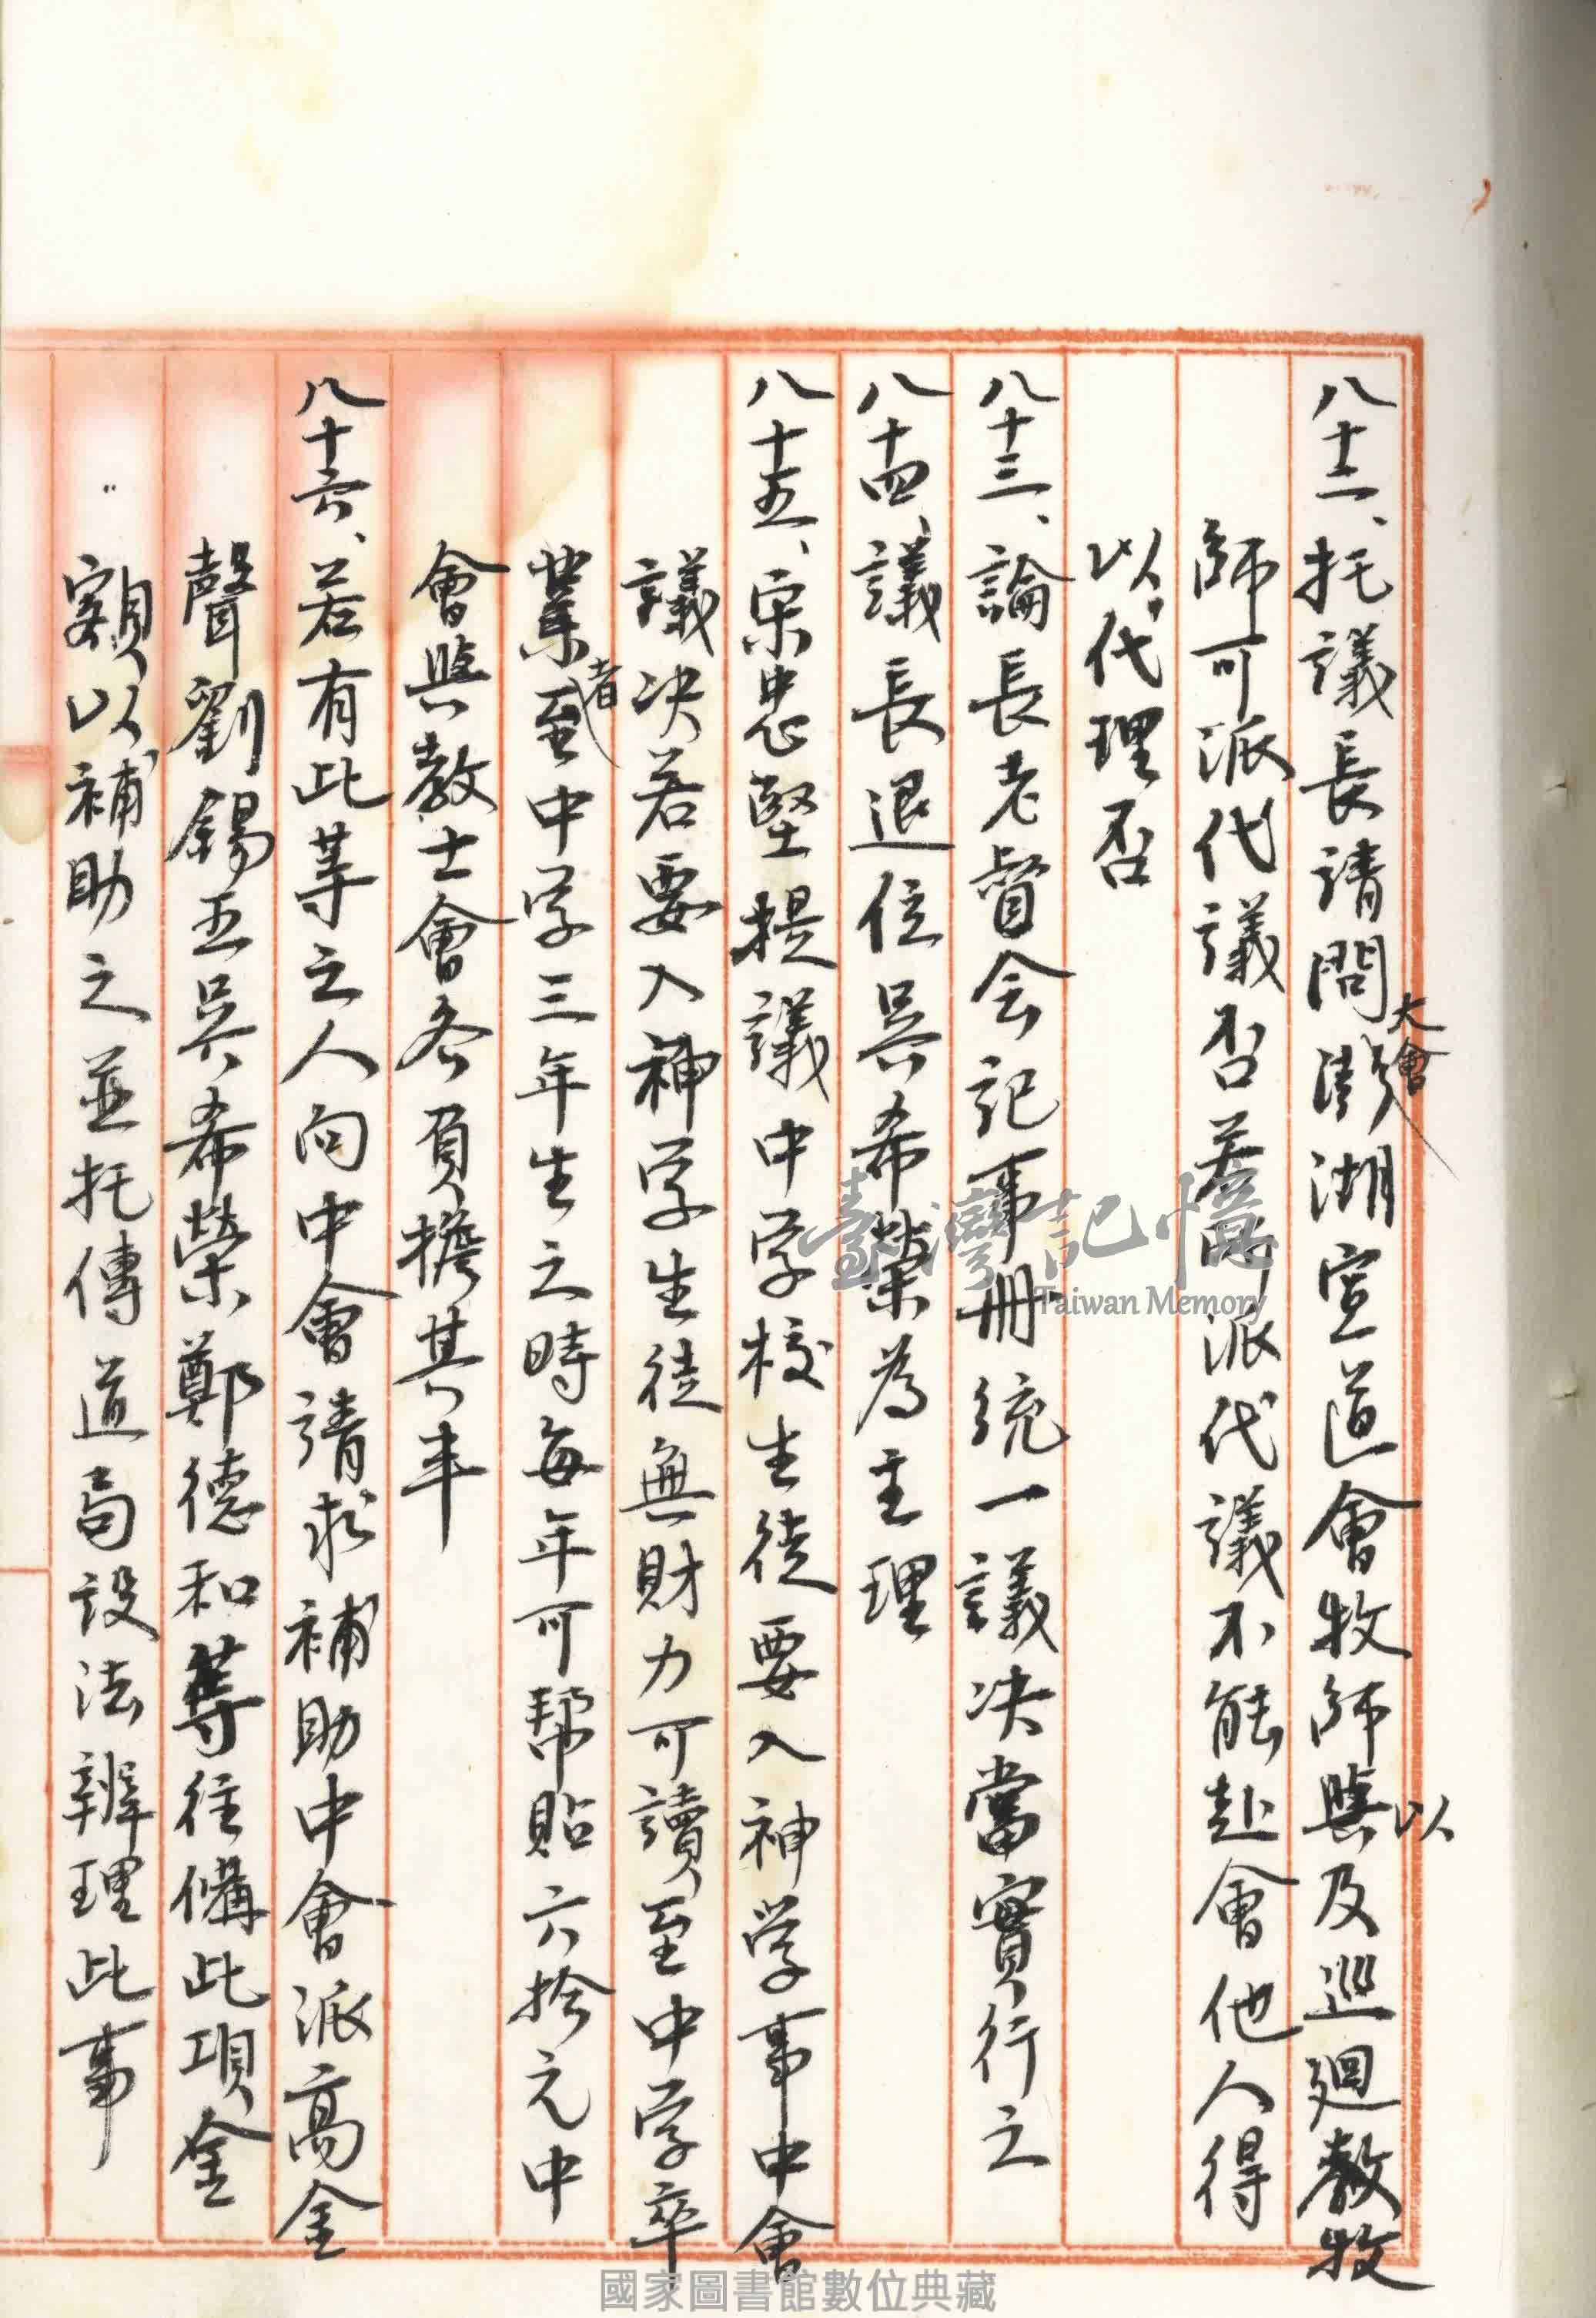 八十二、托議長請問大會澎湖宣道會牧師與以及巡廻教牧
師可派代議否若所派代議不能赴會他人得
以代理否
八十三、論長老督会記事冊統一議决當實行之
八十四、議長退位吳希榮為主理
八十五、宋忠堅提議中学校生徒要入神学事中會
議决若要入神学生徒無財力可讀至中学卒
業者至中学三年生之時每年可幇貼六拾元中
會與教士會各負擔其半
八十六、若有此等之人向中會請求補助中會派高金
聲劉錫五吳希榮鄭德和等往備此項金
額以補助之並托傳道局設法辦理此事
臺灣記憶
Taiwan Memory
國家圖書館數位典藏